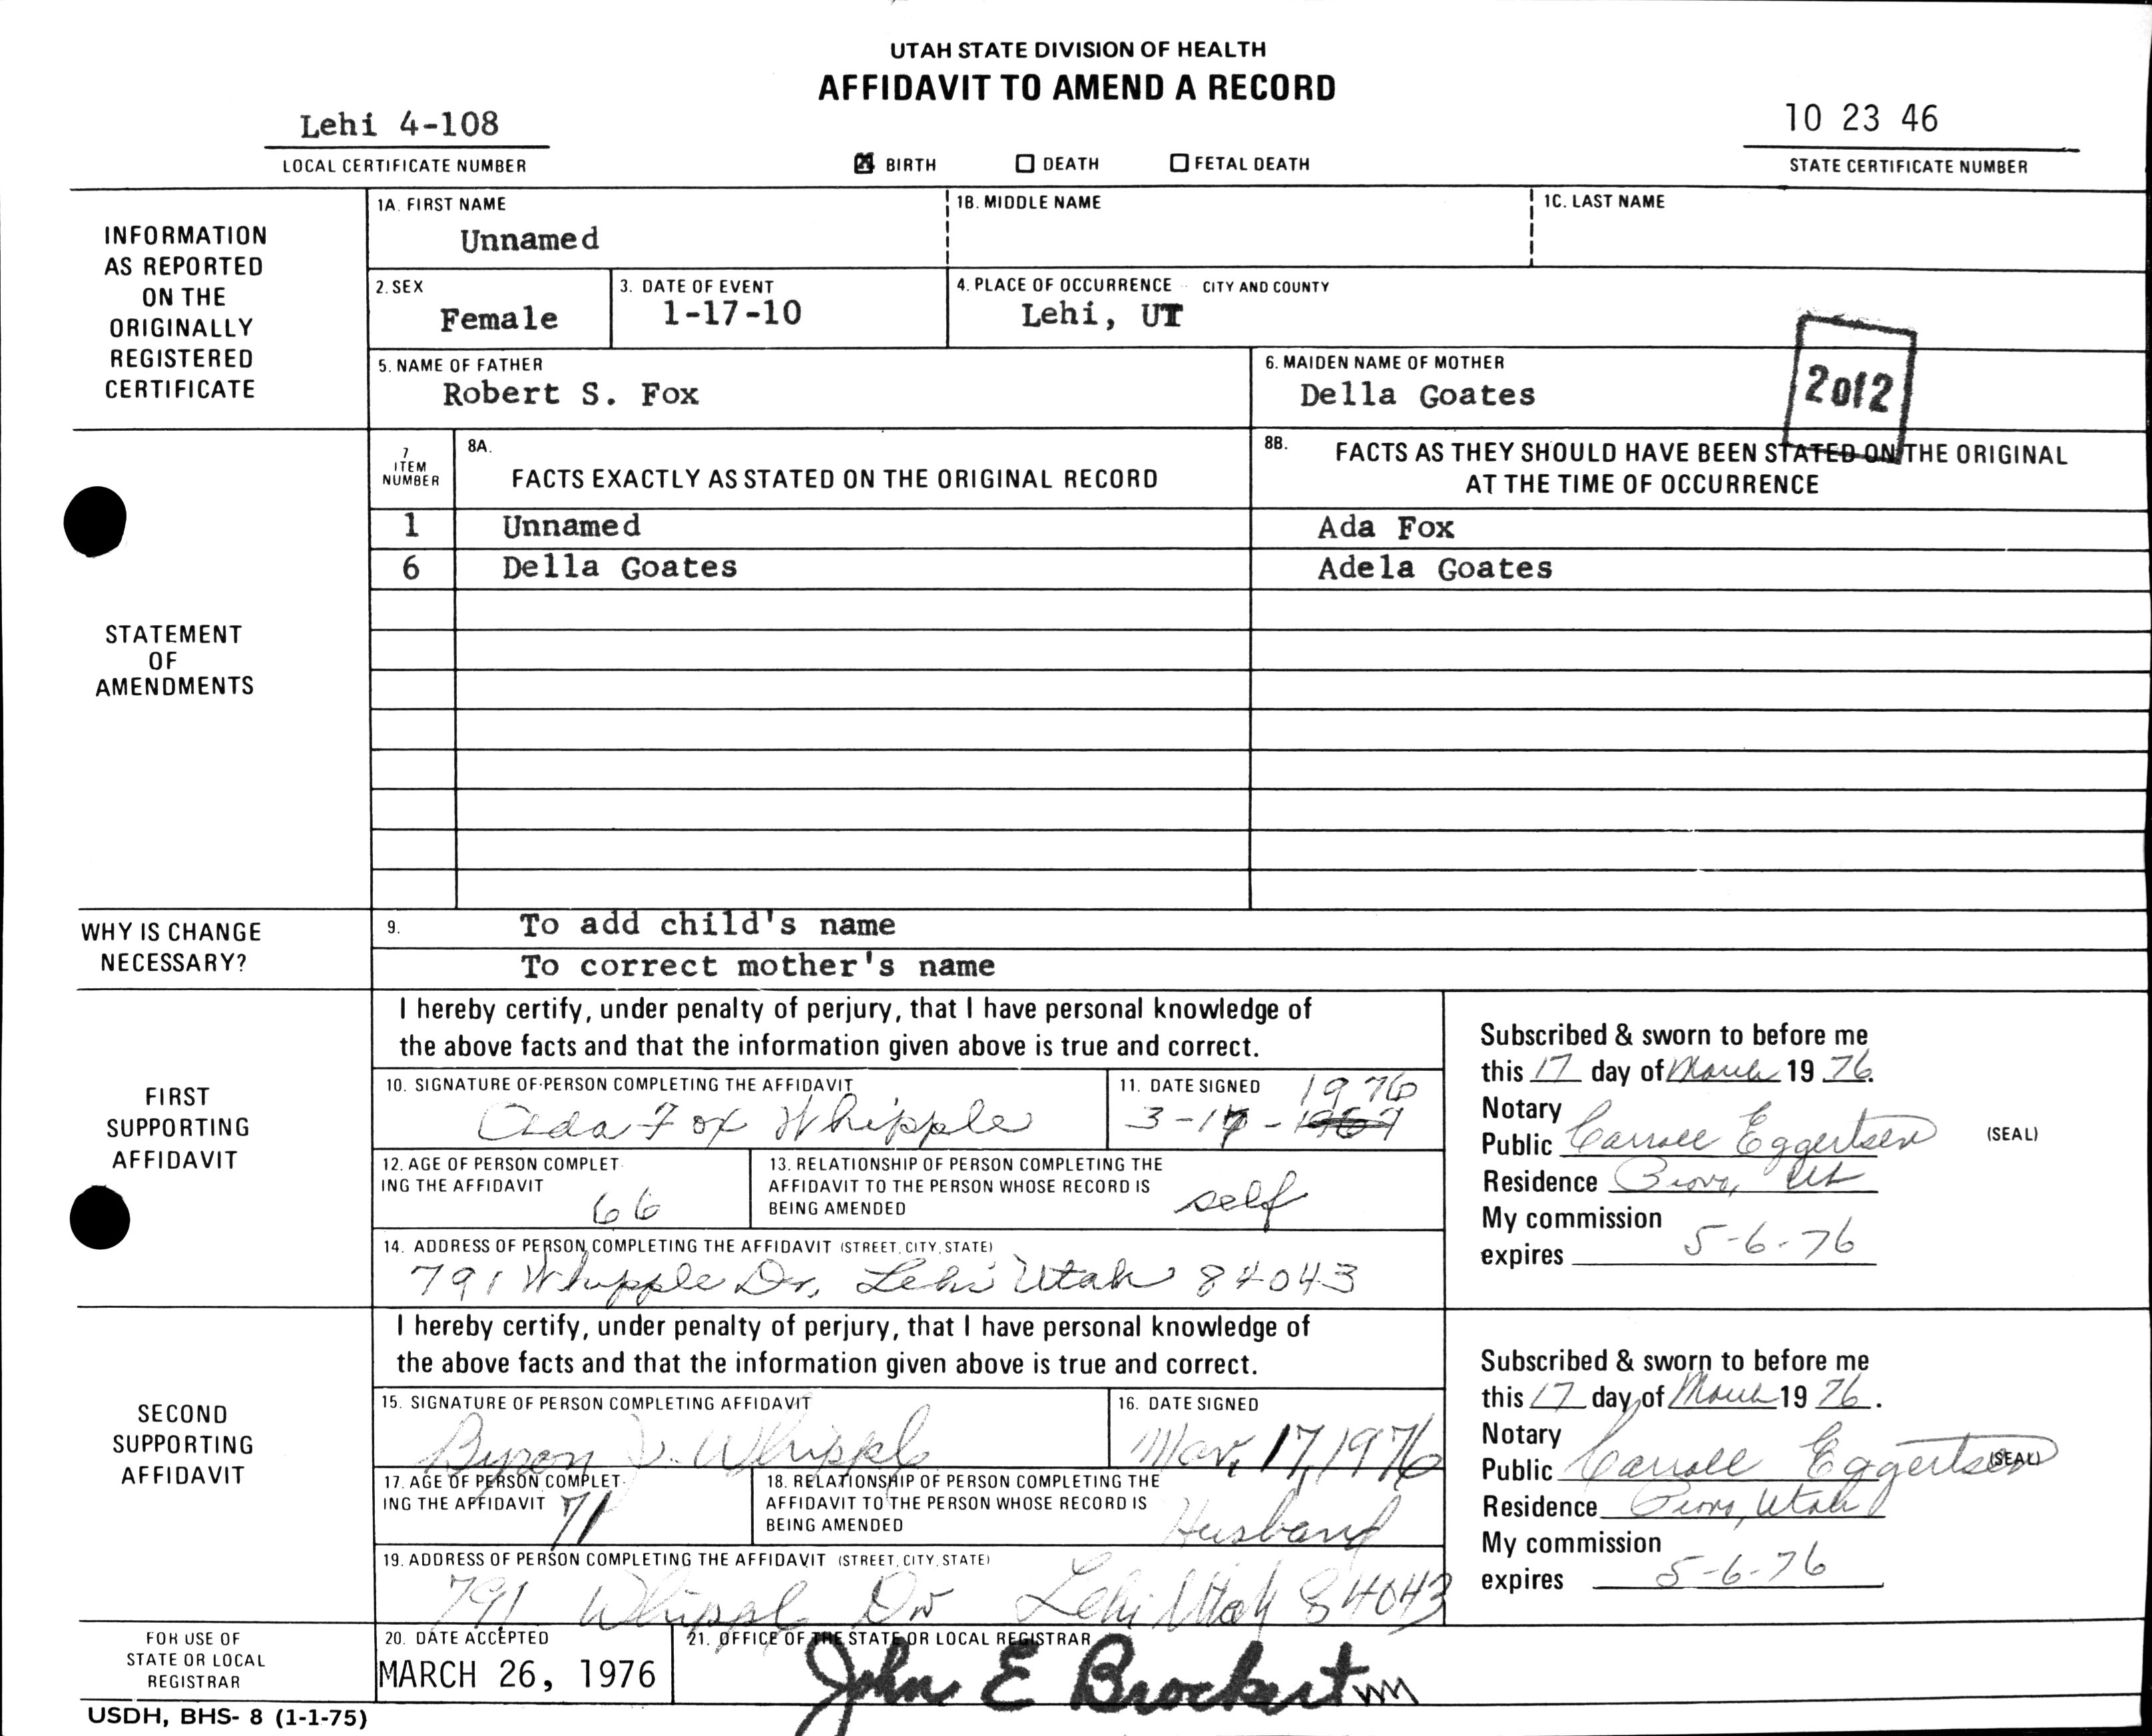 UTAH STATE DIVISION OF HEALTH
AFFIDAVIT TO AMEND A RECORD
Lehi 4-108
10 23 46
LOCAL CERTIFICATE NUMBER
BIRTH DEATH FETAL DEATH
STATE CERTIFICATE NUMBER
INFORMATION AS REPORTED ON THE ORIGINALLY REGISTERED CERTIFICATE
1A. FIRST NAME 1B. MIDDLE NAME 1C. LAST NAME
Unnamed
2. SEX 3. DATE OF EVENT 4. PLACE OF OCCURRENCE CITY AND COUNTY
Female 1-17-10 Lehi, UT
5. NAME OF FATHER 6. MAIDEN NAME OF MOTHER
Robert S. Fox Della Goates
2012
STATEMENT OF AMENDMENTS
7 ITEM NUMBER
8A. FACTS EXACTLY AS STATED ON THE ORIGINAL RECORD
8B. FACTS AS THEY SHOULD HAVE BEEN STATED ON THE ORIGINAL
AT THE TIME OF OCCURRENCE
1 Unnamed Ada Fox
6 Della Goates Adela Goates
WHY IS CHANGE NECESSARY?
9. To add child's name
To correct mother's name
FIRST SUPPORTING AFFIDAVIT
I hereby certify, under penalty of perjury, that I have personal knowledge of
the above facts and that the information given above is true and correct.
10. SIGNATURE OF PERSON COMPLETING THE AFFIDAVIT
Ada Fox Whipple
11. DATE SIGNED 1976
3-17-
12. AGE OF PERSON COMPLET-
ING THE AFFIDAVIT 66
13. RELATIONSHIP OF PERSON COMPLETING THE
AFFIDAVIT TO THE PERSON WHOSE RECORD IS
BEING AMENDED self
14. ADDRESS OF PERSON COMPLETING THE AFFIDAVIT (STREET, CITY, STATE)
791 Whipple Dr, Lehi Utah 84043
Subscribed & sworn to before me
this 17 day of March 19 76.
Notary
Public Carroll Eggertsen (SEAL)
Residence Provo, Ut
My commission
expires 5-6-76
SECOND SUPPORTING AFFIDAVIT
I hereby certify, under penalty of perjury, that I have personal knowledge of
the above facts and that the information given above is true and correct.
15. SIGNATURE OF PERSON COMPLETING AFFIDAVIT
Byron J. Whipple
16. DATE SIGNED
Mar, 17, 1976
17. AGE OF PERSON COMPLET-
ING THE AFFIDAVIT 71
18. RELATIONSHIP OF PERSON COMPLETING THE
AFFIDAVIT TO THE PERSON WHOSE RECORD IS
BEING AMENDED Husband
19. ADDRESS OF PERSON COMPLETING THE AFFIDAVIT (STREET, CITY, STATE)
791 Whipple Dr Lehi Utah 84043
Subscribed & sworn to before me
this 17 day of March 19 76.
Notary
Public Carroll Eggertsen (SEAL)
Residence Provo, Utah
My commission
expires 5-6-76
FOR USE OF STATE OR LOCAL REGISTRAR
20. DATE ACCEPTED
MARCH 26, 1976
21. OFFICE OF THE STATE OR LOCAL REGISTRAR
John E Brockert
USDH, BHS- 8 (1-1-75)